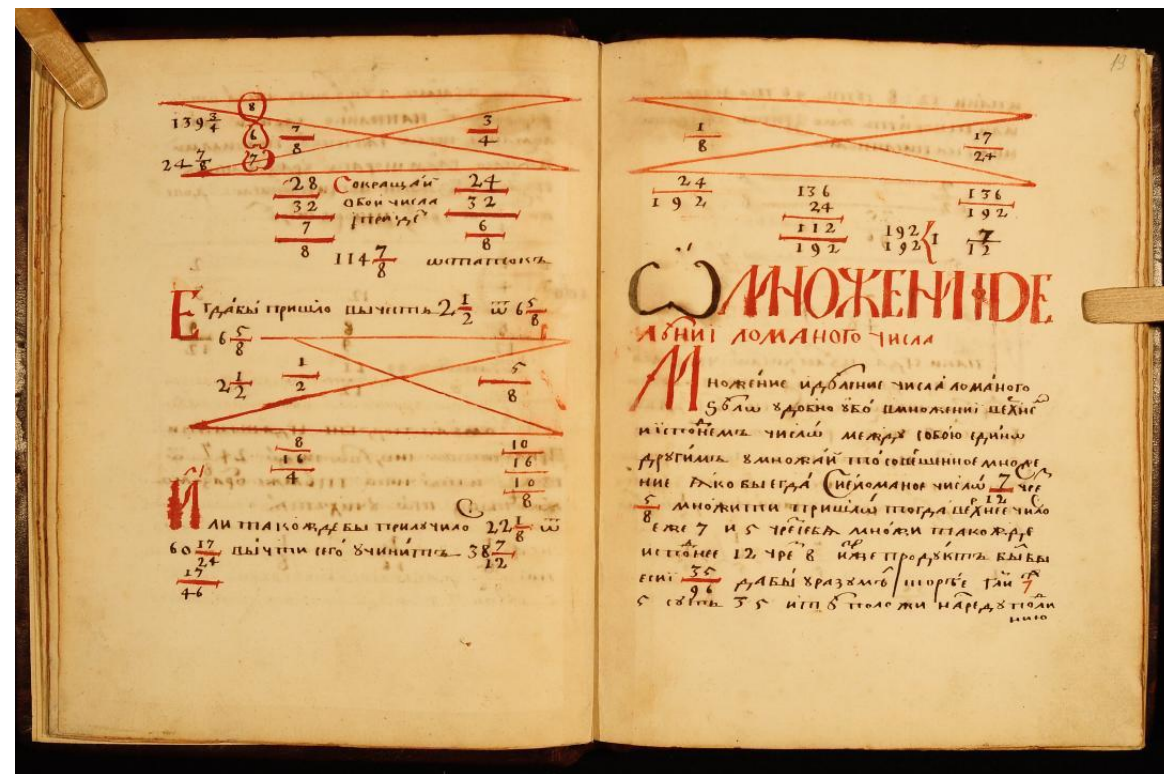 139 3/4 8
6 7/8 3/4
24 7/8 7
28 Сокращай 24
32 обои числа 32
7 прїиде 6
8 8
114 7/8 ѡстатокъ
Егдабы пришло вычесть 2 1/2 ѿ 6 5/8
6 5/8
2 1/2 1/2 5/8
8 10
16 16
4 10
8
Или такождебы прилучило 22 1/8 ѿ
60 17/24 вычти сего учинитъ 38 7/12
17/46
13
1/8 17/24
24/192 136 136/192
24
112/192 192 192 { 1 7/12
Ѡ МНОЖЕНІІ ДЕ
ЛЕНИІ ЛОМАНОГО числа
Множение и дѣление числа ломаного
ѕѣлѡ удобно убо вмножені верхнеѐ
числѡ между собою единѡ
другимъ умножай то совешенное множе
ние Ꙗко бы егда сие ломаное числѡ 7/12 чре
5/8 множитти пришлѡ тогда верхнее число
еже 7 и 5 чресебѧ множи такожде
исподнее 12 чре 8 иже продуктъ былъ бы
есиї 35/96 дабы уразумѣ 7
5 суть 35 положи нареду подли
нию